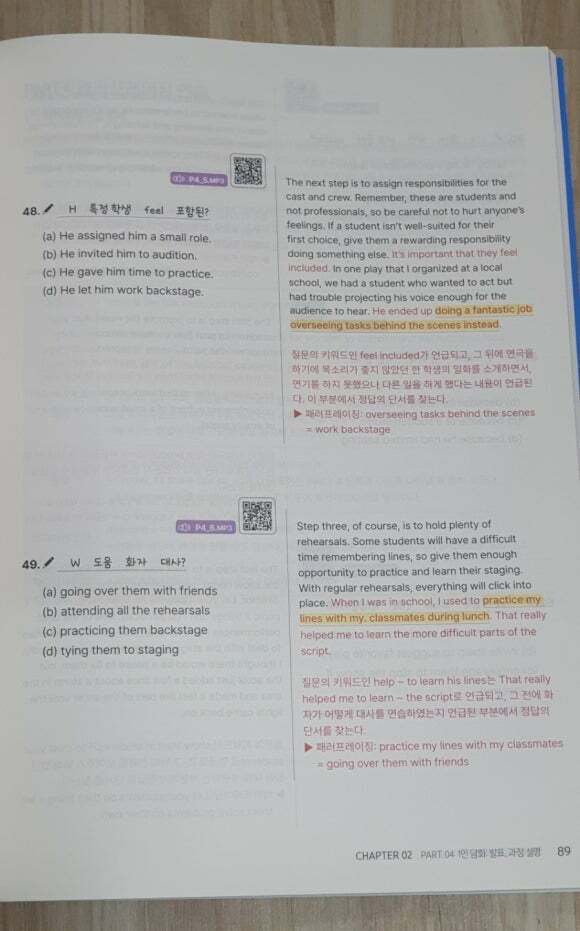 P4_5.MP3
48. H 특정 학생 feel 포함된?
(a) He assigned him a small role.
(b) He invited him to audition.
(c) He gave him time to practice.
(d) He let him work backstage.
The next step is to assign responsibilities for the
cast and crew. Remember, these are students and
not professionals, so be careful not to hurt anyone's
feelings. If a student isn't well-suited for their
first choice, give them a rewarding responsibility
doing something else. It's important that they feel
included. In one play that I organized at a local
school, we had a student who wanted to act but
had trouble projecting his voice enough for the
audience to hear. He ended up doing a fantastic job
overseeing tasks behind the scenes instead.
질문의 키워드인 feel included가 언급되고, 그 뒤에 연극을
하기에 목소리가 좋지 않았던 한 학생의 일화를 소개하면서,
연기를 하지 못했으나 다른 일을 하게 했다는 내용이 언급된
다. 이 부분에서 정답의 단서를 찾는다.
▶ 패러프레이징: overseeing tasks behind the scenes
= work backstage
P4_6.MP3
49. W 도움 화자 대사?
(a) going over them with friends
(b) attending all the rehearsals
(c) practicing them backstage
(d) tying them to staging
Step three, of course, is to hold plenty of
rehearsals. Some students will have a difficult
time remembering lines, so give them enough
opportunity to practice and learn their staging.
With regular rehearsals, everything will click into
place. When I was in school, I used to practice my
lines with my. classmates during lunch. That really
helped me to learn the more difficult parts of the
script.
질문의 키워드인 help ~ to learn his lines는 That really
helped me to learn ~ the script로 언급되고, 그 전에 화
자가 어떻게 대사를 연습하였는지 언급된 부분에서 정답의
단서를 찾는다.
▶ 패러프레이징: practice my lines with my classmates
= going over them with friends
CHAPTER 02 PART 04 1인 담화: 발표, 과정 설명 89